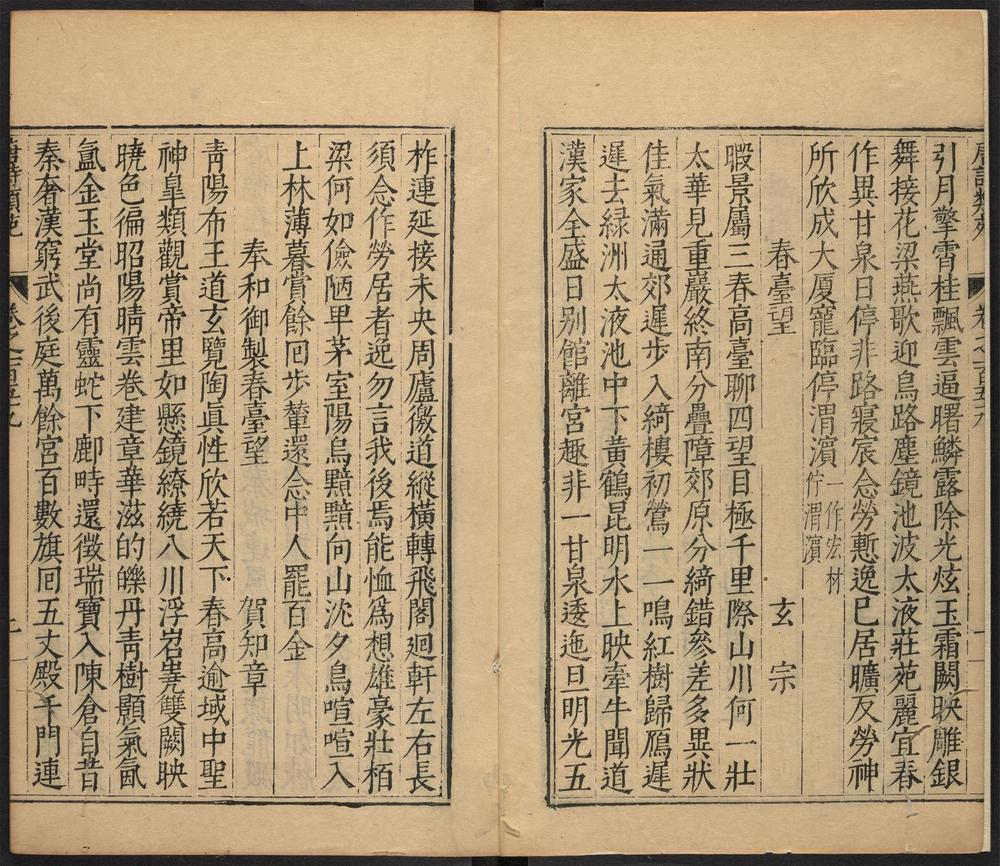 唐詩類苑 卷之一百五十九
引月擎霄桂飄雲逼曙鱗露除光炫玉霜闕映雕銀
舞接花梁燕歌迎鳥路塵鏡池波太液莊苑麗宜春
作異甘泉日停非路寢宸念勞慙逸已居曠反勞神
所欣成大厦寵臨停渭濱一作宏材佇渭濱
春臺望 玄宗
暇景屬三春高臺聊四望目極千里際山川何一壯
太華見重巖終南分疊障郊原分綺錯參差多異狀
佳氣滿通郊遲步入綺樓初鶯一一鳴紅樹歸鴈遲
遲去綠洲太液池中下黃鶴昆明水上映牽牛聞道
漢家全盛日别館離宮趣非一甘泉逶迤亘明光五
柞連延接未央周廬徼道縱橫轉飛閣迴軒左右長
須念作勞居者逸勿言我後焉能恤爲想雄豪壯栢
梁何如儉陋卑茅室陽烏黯黯向山沈夕鳥喧喧入
上林薄暮賞餘回步輦還念中人罷百金
奉和御製春臺望 賀知章
青陽布王道玄覽陶眞性欣若天下春高逾域中聖
神皐類觀賞帝里如懸鏡繚繞八川浮岧嶤雙闕映
曉色徧昭陽晴雲卷建章華滋的皪丹青樹顥氣氤
氳金玉堂尚有靈蛇下鄜畤還徵瑞寶入陳倉自昔
秦奢漢窮武後庭萬餘宮百數旗回五丈殿千門連
唐詩類苑 卷之一百五十九 二